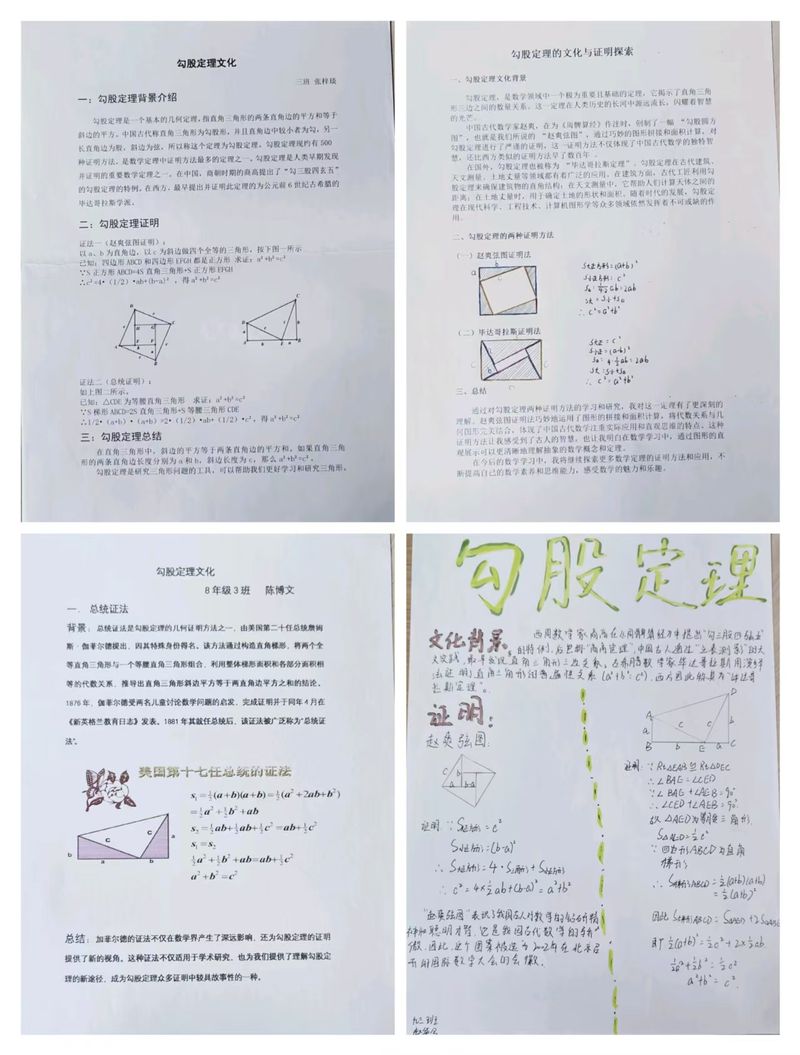 勾股定理文化
三班 张梓琰
一：勾股定理背景介绍
勾股定理是一个基本的几何定理，指直角三角形的两条直角边的平方和等于
斜边的平方。中国古代称直角三角形为勾股形，并且直角边中较小者为勾，另一
长直角边为股，斜边为弦，所以称这个定理为勾股定理。勾股定理现约有 500
种证明方法，是数学定理中证明方法最多的定理之一。勾股定理是人类早期发现
并证明的重要数学定理之一。在中国，商朝时期的商高提出了“勾三股四玄五”
的勾股定理的特例。在西方，最早提出并证明此定理的为公元前 6 世纪古希腊的
毕达哥拉斯学派。
二：勾股定理证明
证法一（赵爽弦图证明）；
以 a、b 为直角边，以 c 为斜边做四个全等的三角形，按下图一所示
已知：四边形 ABCD 和四边形 EFGH 都是正方形 求证：a²+b²=c²
∵S 正方形 ABCD=4S 直角三角形+S 正方形 EFGH
∴c²=4•（1/2）•ab+(b-a)² ，得 a²+b²=c²
证法二（总统证明）；
如上图二所示。
已知：△CDE 为等腰直角三角形 求证：a²+b²=c²
∵S 梯形 ABCD=2S 直角三角形+S 等腰三角形 CDE
∴1/2•（a+b）•（a+b）=2•（1/2）•ab+（1/2）•c²，得 a²+b²=c²
三：勾股定理总结
在直角三角形中，斜边的平方等于两条直角边的平方和。如果直角三角
形的两条直角边长度分别为 a 和 b，斜边长度为 c，那么 a²+b²=c²。
勾股定理是研究三角形问题的工具，可以帮助我们更好学习和研究三角形。
勾股定理的文化与证明探索
一、勾股定理文化背景
勾股定理，是数学领域中一个极为重要且基础的定理，它揭示了直角三角
形三边之间的数量关系。这一定理在人类历史的长河中源远流长，闪耀着智慧
的光芒。
中国古代数学家赵爽，在为《周髀算经》作注时，创制了一幅 “勾股圆方
图”，也就是我们所说的 “赵爽弦图”，通过巧妙的图形拼接和面积计算，对
勾股定理进行了严谨的证明，这一证明方法不仅体现了中国古代数学的独特智
慧，还比西方类似的证明方法早了数百年 。
在国外，勾股定理也被称为 “毕达哥拉斯定理”。勾股定理在古代建筑、
天文测量、土地丈量等领域都有着广泛的应用。在建筑方面，古代工匠利用勾
股定理来确保建筑物的直角结构；在天文测量中，它帮助人们计算天体之间的
距离；在土地丈量时，用于确定土地的形状和面积。随着时代的发展，勾股定
理在现代科学、工程技术、计算机图形学等众多领域依然发挥着不可或缺的作
用。
二、勾股定理的两种证明方法
（一）赵爽弦图证明法
a
b
c
S大正方形=(a+b)²
S小正方形: c²
∴ c²=a²+b²
（二）毕达哥拉斯证明法
S大正 = c²
S小正 = (a-b)²
∴ c²= a²+b²
三、总结
通过对勾股定理两种证明方法的学习和研究，我对这一定理有了更深刻的
理解。赵爽弦图证明法巧妙地运用了图形的拼接和面积计算，将代数关系与几
何图形完美结合，体现了中国古代数学注重实际应用和直观思维的特点。这种
证明方法让我感受到了古人的智慧，也让我明白在数学学习中，通过图形的直
观展示可以更清晰地理解抽象的数学概念和定理。
在今后的数学学习中，我将继续探索更多数学定理的证明方法和应用，不
断提高自己的数学素养和思维能力，感受数学的魅力和乐趣。
勾股定理文化
8 年级 3 班 陈博文
一. 总统证法
背景：总统证法是勾股定理的几何证明方法之一，由美国第二十任总统詹姆
斯·伽菲尔德提出，因其特殊身份得名。该方法通过构造直角梯形，将两个全
等直角三角形与一个等腰直角三角形组合，利用整体梯形面积和各部分面积相
等的代数关系，推导出直角三角形斜边平方等于两直角边平方之和的结论。
1876 年，伽菲尔德受两名儿童讨论数学问题的启发，完成证明并于同年 4 月在
《新英格兰教育日志》发表。1881 年其就任总统后，该证法被广泛称为“总统证
法”。
美国第十七任总统的证法
s₁=½(a+b)(a+b)=½(a²+2ab+b²)
=½a²+½b²+ab
s₂=½ab+½ab+½c²=ab+½c²
s₁=s₂
½a²+½b²+ab=ab+½c²
a²+b²=c²
总结：加菲尔德的证法不仅在数学界产生了深远影响，还为勾股定理的证明
提供了新的视角。这种证法不仅适用于学术研究，也为我们提供了理解勾股定
理的新途径，成为勾股定理众多证明中较具故事性的一种。
勾股定理
文化背景
西周数学家商高在《周髀算经》中提出“勾三股四弦五”
证明：
赵爽弦图:
证明: ∵ S大正方形 = c²
S小正方形=(b-a)²
∴ c²=4×½ab+(b-a)²=a²+b²
证明: ∵ Rt△EAB≌Rt△DEC
∴ ∠BAE=∠CED
∵ ∠BAE+∠AEB=90°
∴ ∠CED+∠AEB=90°
S△AED=½c²
∵ 四边形ABCD为直角
梯形
∴ S梯形ABCD=½(a+b)(a+b)
=½(a+b)²
即 ½(a+b)²=½c²+2×½ab
½a²+½b²=½c²
a²+b²=c².